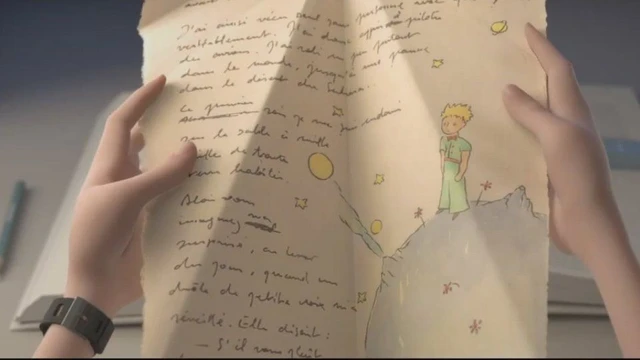 J'ai ainsi vécu seul sans personne avec qui
véritablement. J'ai donc appris à piloter
des avions. J'ai volé un peu partout
dans le monde, jusqu'à une panne
dans le désert du Sahara.
Ce premier soir je me suis endormi
sur le sable à mille
mille de toute
terre habitée.
Alors vous
imaginez ma
surprise, au lever
du jour, quand une
drôle de petite voix m'a
réveillé. Elle disait :
— S'il vous plaît